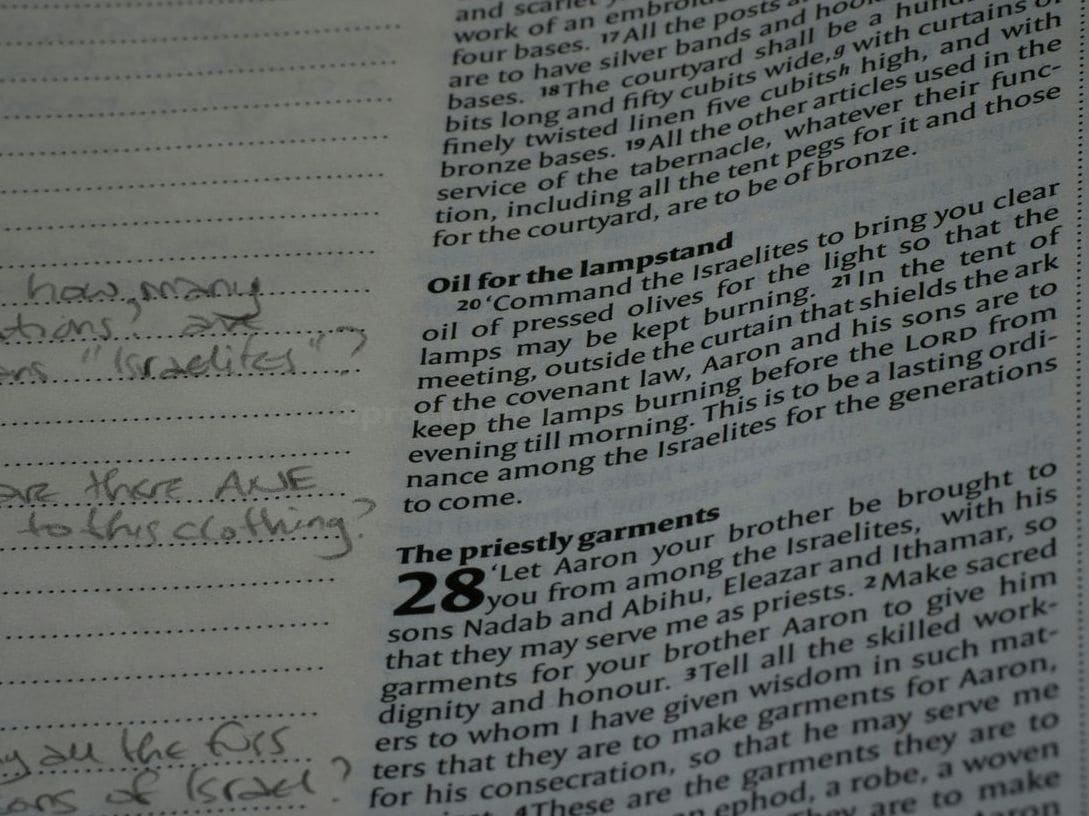 how many
are
"Israelites"?
are there ANE
to this clothing?
all the
of Israel?
and scarlet
work of an
four bases. 17 All the posts
are to have silver bands and
bases. 18 The courtyard shall be a
bits long and fifty cubits wide,g with curtains of
finely twisted linen five cubitsh high, and with
bronze bases. 19 All the other articles used in the
service of the tabernacle, whatever their func-
tion, including all the tent pegs for it and those
for the courtyard, are to be of bronze.
Oil for the lampstand
20 ‘Command the Israelites to bring you clear
oil of pressed olives for the light so that the
lamps may be kept burning. 21 In the tent of
meeting, outside the curtain that shields the ark
of the covenant law, Aaron and his sons are to
keep the lamps burning before the LORD from
evening till morning. This is to be a lasting ordi-
nance among the Israelites for the generations
to come.
The priestly garments
28 ‘Let Aaron your brother be brought to
you from among the Israelites, with his
sons Nadab and Abihu, Eleazar and Ithamar, so
that they may serve me as priests. 2 Make sacred
garments for your brother Aaron to give him
dignity and honour. 3 Tell all the skilled work-
ers to whom I have given wisdom in such mat-
ters that they are to make garments for Aaron,
for his consecration, so that he may serve me
4 These are the garments they are to
ephod, a robe, a woven
They are to make